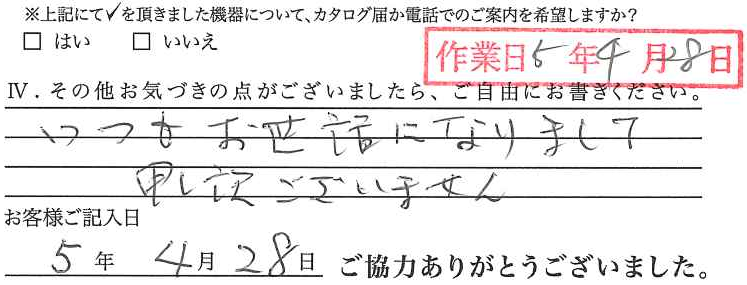 ※上記にて✓を頂きました機器について、カタログ届か電話でのご案内を希望しますか?
□ はい □ いいえ
作業日5年4月28日
Ⅳ．その他お気づきの点がございましたら、ご自由にお書きください。
いつもお世話になりまして
申し訳ございません
お客様ご記入日
5年 4月28日 ご協力ありがとうございました。